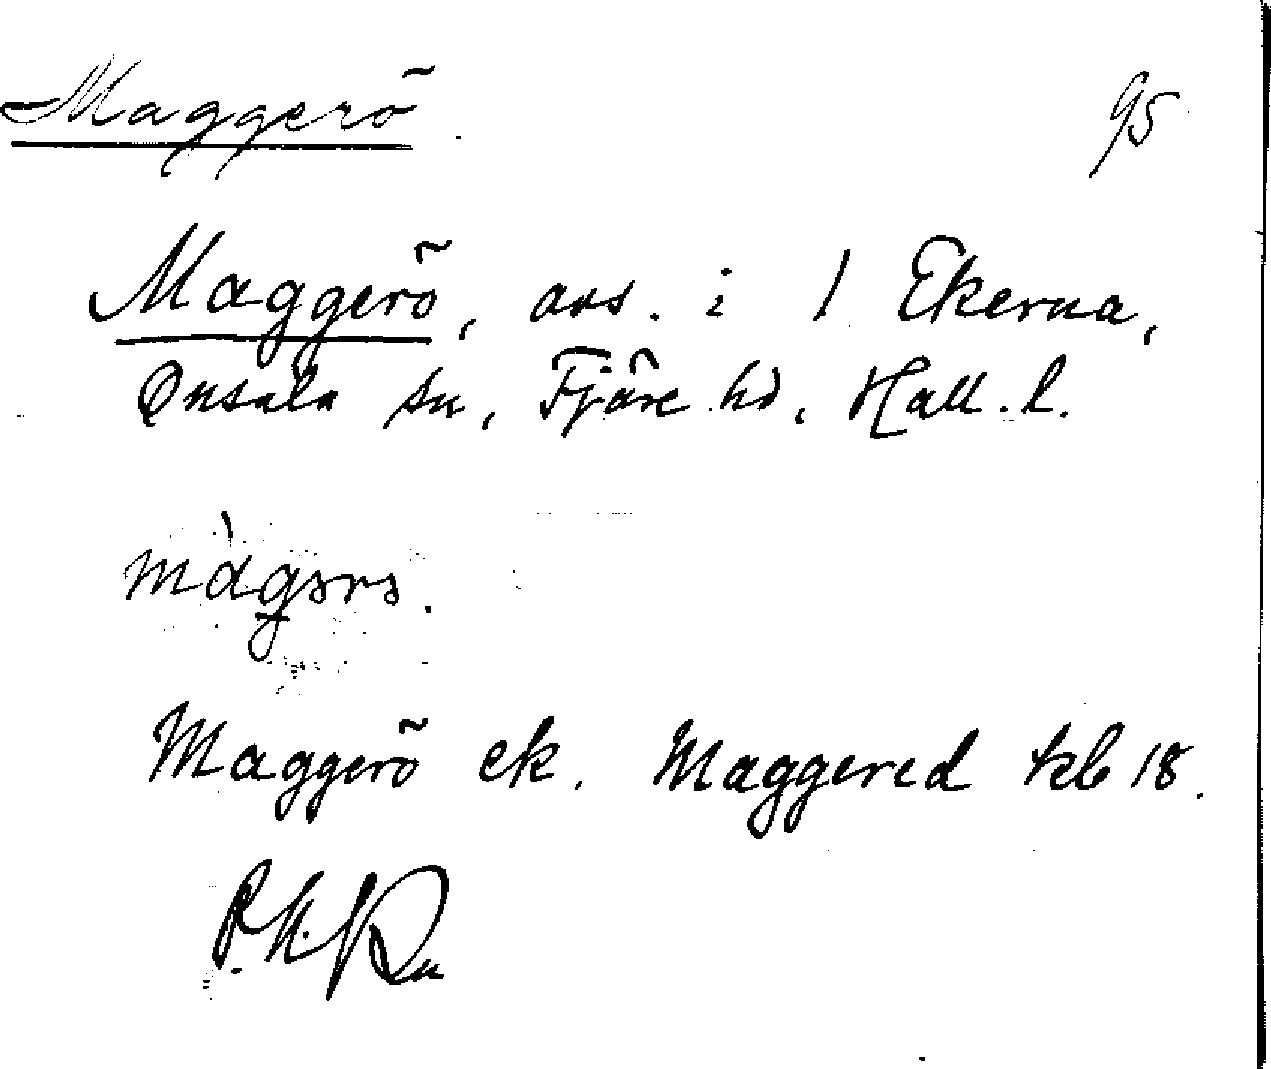 Maggerö. 95
Maggerö, avs. i 1 Ekerna,
Onsala sn, Fjäre hd, Hall. l.
Maggerö ek. Maggered kb 18.